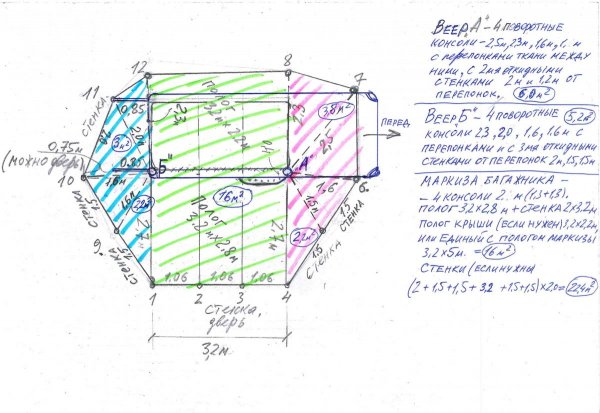 12
8
7
11
СТЕНКА
2,0
0,85
3м²
2,3м
ПОЛОГ
3,2м х 2,2м
2,3
3,8м²
2,5
ПЕРЕД
0,75м
(МОЖНО ДВЕРЬ)
0,85
"Б"
"А"
10
1,6м
16м²
1,6
6
СТЕНКА
1,5
1,6м
2,7м
ПОЛОГ
3,2м х 2,8м
2,7м
1,5м
2,2м²
1,5
СТЕНКА
*6
СТЕНКА
1,5
1,5
СТЕНКА
1,06
1,06
1,06
1
2
3
4
СТЕНКА,
ДВЕРЬ
3,2м
ВЕЕР "А" - 4 ПОВОРОТНЫЕ
КОНСОЛИ - 2,5м, 2,3м, 1,6м, 1, м
С ПЕРЕПОНКАМИ ТКАНИ МЕЖДУ
НИМИ, С 2мя ОТКИДНЫМИ
СТЕНКАМИ 2м и 1,2м ОТ
ПЕРЕПОНОК. 6,0м²
ВЕЕР "Б" - 4 ПОВОРОТНЫЕ 5,2м²
КОНСОЛИ 2,3, 2,0, 1,6, 1,6м С
ПЕРЕПОНКАМИ И С 3мя ОТКИДНЫМИ
СТЕНКАМИ ОТ ПЕРЕПОНОК 2м, 1,5, 1,5м
МАРКИЗА БАГАЖНИКА -
- 4 КОНСОЛИ 2, м (1,3+1,3).
ПОЛОГ 3,2х2,8м + СТЕНКА 2х3,2м
ПОЛОГ КРЫШИ (ЕСЛИ НУЖЕН) 3,2х2,2м,
ИЛИ ЕДИНЫЙ С ПОЛОГОМ МАРКИЗЫ
3,2х5м. = 16м²
СТЕНКИ (ЕСЛИ НУЖНЫ)
(2 + 1,5 + 1,5 + 3,2 + 1,5 + 1,5) х 2,0 = 22,4м²